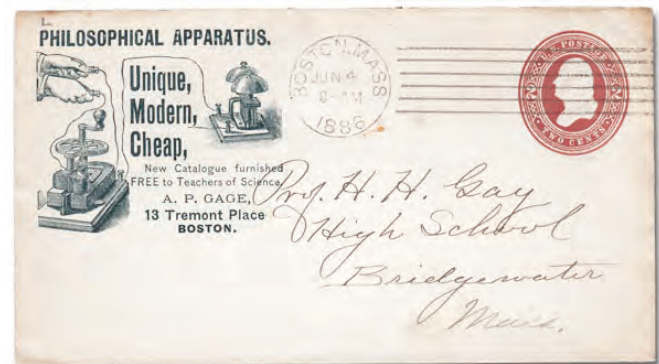 PHILOSOPHICAL APPARATUS.
Unique,
Modern,
Cheap,
New Catalogue furnished
FREE to Teachers of Science.
A. P. GAGE,
13 Tremont Place
BOSTON.
BOSTON, MASS
JUN 4
1886
U.S. POSTAGE
2 2
TWO CENTS
Prof. H. H. Gay
High School
Bridgewater
Mass.